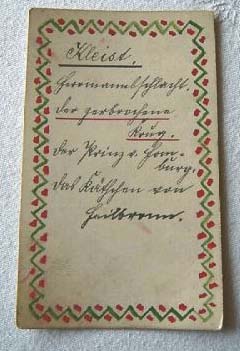 Kleist.
Herrmannsschlacht.
Der zerbrochene
Krug.
Der Prinz v. Hom-
burg.
Das Käthchen von
Heilbronn.